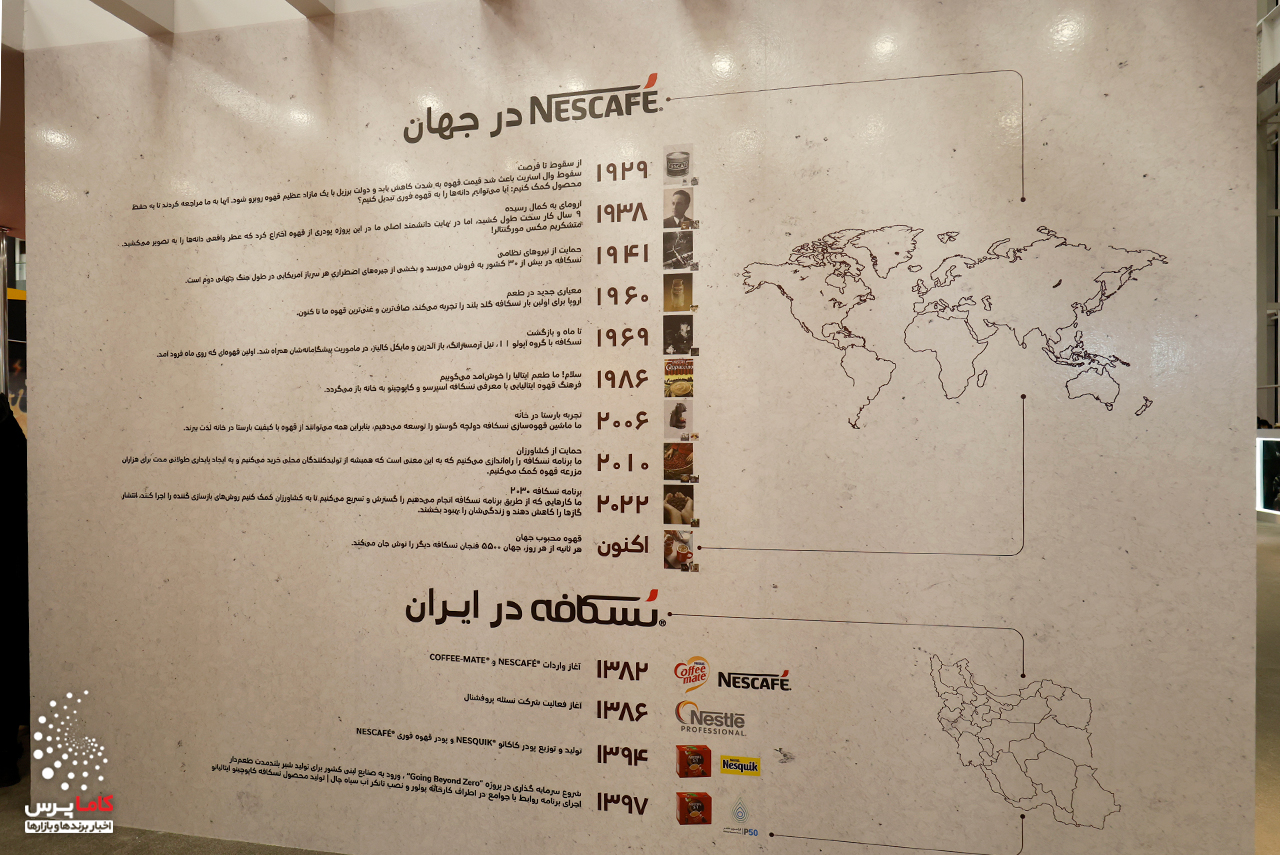 NESCAFÉ® در جهان
۱۹۲۹
از سقوط تا فرصت
سقوط وال استریت باعث شد قیمت قهوه به شدت کاهش یابد و دولت برزیل با یک مازاد عظیم قهوه روبرو شود. آنها به ما مراجعه کردند تا به حفظ
محصول کمک کنیم: آیا می‌توانیم دانه‌ها را به قهوه فوری تبدیل کنیم؟
۱۹۳۸
آرومای به کمال رسیده
۹ سال کار سخت طول کشید، اما در نهایت دانشمند اصلی ما در این پروژه پودری از قهوه اختراع کرد که عطر واقعی دانه‌ها را به تصویر می‌کشید.
متشکریم مکس مورگنتالر!
۱۹۴۱
حمایت از نیروهای نظامی
نسکافه در بیش از ۳۰ کشور به فروش می‌رسد و بخشی از جیره‌های اضطراری هر سرباز آمریکایی در طول جنگ جهانی دوم است.
۱۹۶۰
معیاری جدید در طعم
اروپا برای اولین بار نسکافه گلد بلند را تجربه می‌کند، صاف‌ترین و غنی‌ترین قهوه ما تا کنون.
۱۹۶۹
تا ماه و بازگشت
نسکافه با گروه آپولو ۱۱، نیل آرمسترانگ، باز آلدرین و مایکل کالینز، در ماموریت پیشگامانه‌شان همراه شد. اولین قهوه‌ای که روی ماه فرود آمد.
۱۹۸۶
سلام! ما طعم ایتالیا را خوش‌آمد می‌گوییم
فرهنگ قهوه ایتالیایی با معرفی نسکافه اسپرسو و کاپوچینو به خانه باز می‌گردد.
۲۰۰۶
تجربه باریستا در خانه
ما ماشین قهوه‌سازی نسکافه دولچه گوستو را توسعه می‌دهیم، بنابراین همه می‌توانند از قهوه با کیفیت باریستا در خانه لذت ببرند.
۲۰۱۰
حمایت از کشاورزان
ما برنامه نسکافه را راه‌اندازی می‌کنیم که به این معنی است که همیشه از تولیدکنندگان محلی خرید می‌کنیم و به ایجاد پایداری طولانی مدت برای هزاران
مزرعه قهوه کمک می‌کنیم.
۲۰۲۲
برنامه نسکافه ۲۰۳۰
ما کارهایی که از طریق برنامه نسکافه انجام می‌دهیم را گسترش و تسریع می‌کنیم تا به کشاورزان کمک کنیم روش‌های بازسازی کننده را اجرا کنند، انتشار
گازها را کاهش دهند و زندگی‌شان را بهبود بخشند.
اکنون
قهوه محبوب جهان
هر ثانیه از هر روز، جهان ۵۵۰۰ فنجان نسکافه دیگر را نوش جان می‌کند.
نسکافه® در ایران
Nestlé
Coffee
mate
NESCAFÉ®
۱۳۸۲
آغاز واردات NESCAFÉ® و COFFEE-MATE®
Nestlé
PROFESSIONAL
۱۳۸۶
آغاز فعالیت شرکت نستله پروفشنال
Nesquik
۱۳۹۴
تولید و توزیع پودر کاکائو NESQUIK® و پودر قهوه فوری NESCAFÉ®
PS0
۱۳۹۷
شروع سرمایه گذاری در پروژه "Going Beyond Zero"، ورود به صنایع لبنی کشور برای تولید شیر بلندمدت طعم‌دار
اجرای برنامه روابط با جوامع در اطراف کارخانه پولور و نصب تانکر آب سیاه چال | تولید محصول نسکافه کاپوچینو ایتالیانو
کاما پرس
اخبار برندها و بازارها